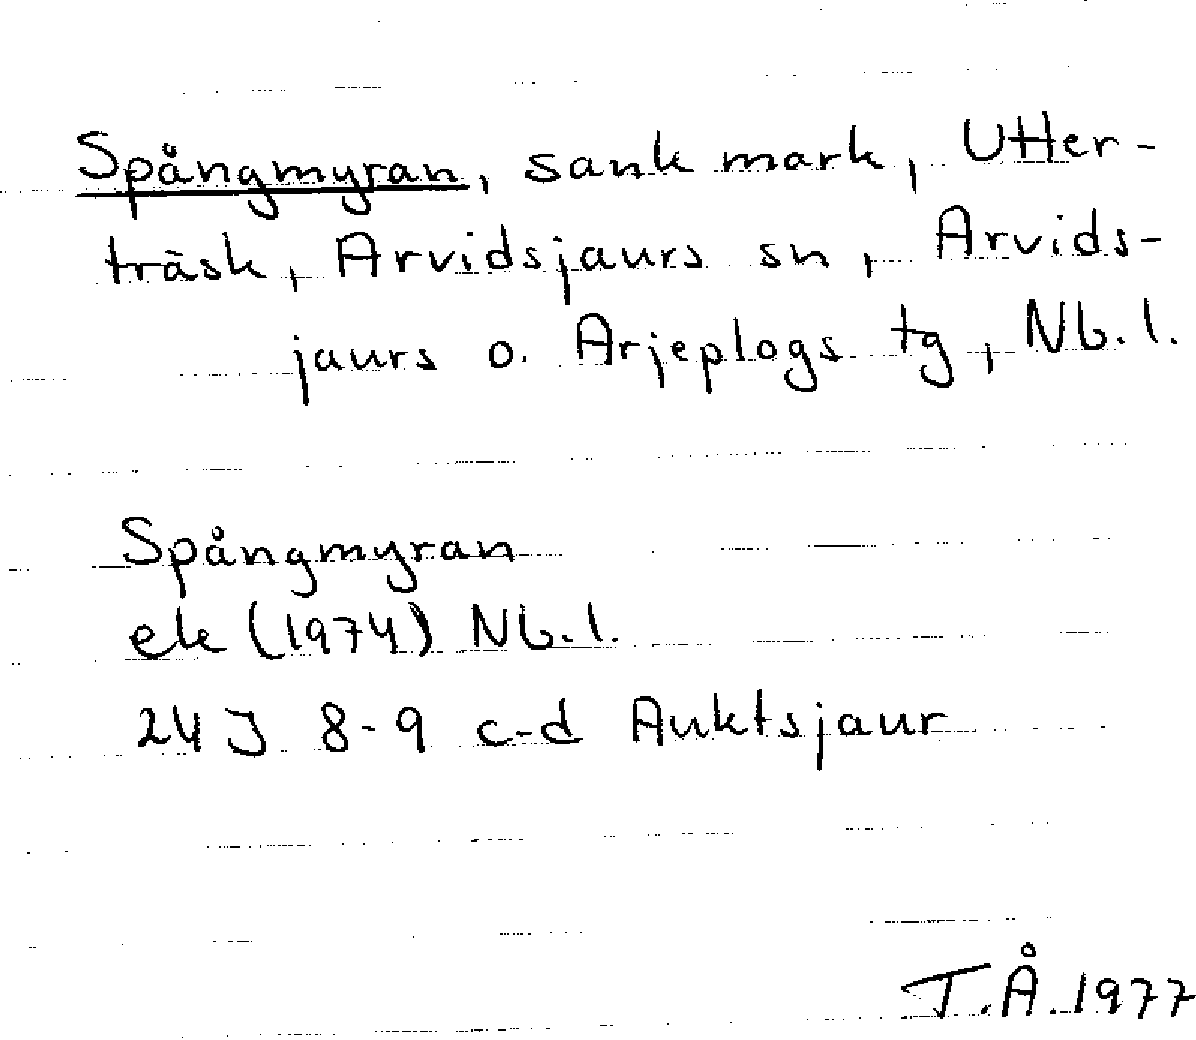 Spångmyran, sank mark, Utter-
träsk, Arvidsjaurs sn, Arvids-
jaurs o. Arjeplogs tg, Nb.l.
Spångmyran
ek (1974) Nb.l.
24 J 8-9 c-d Auktsjaur
T.Å. 1977